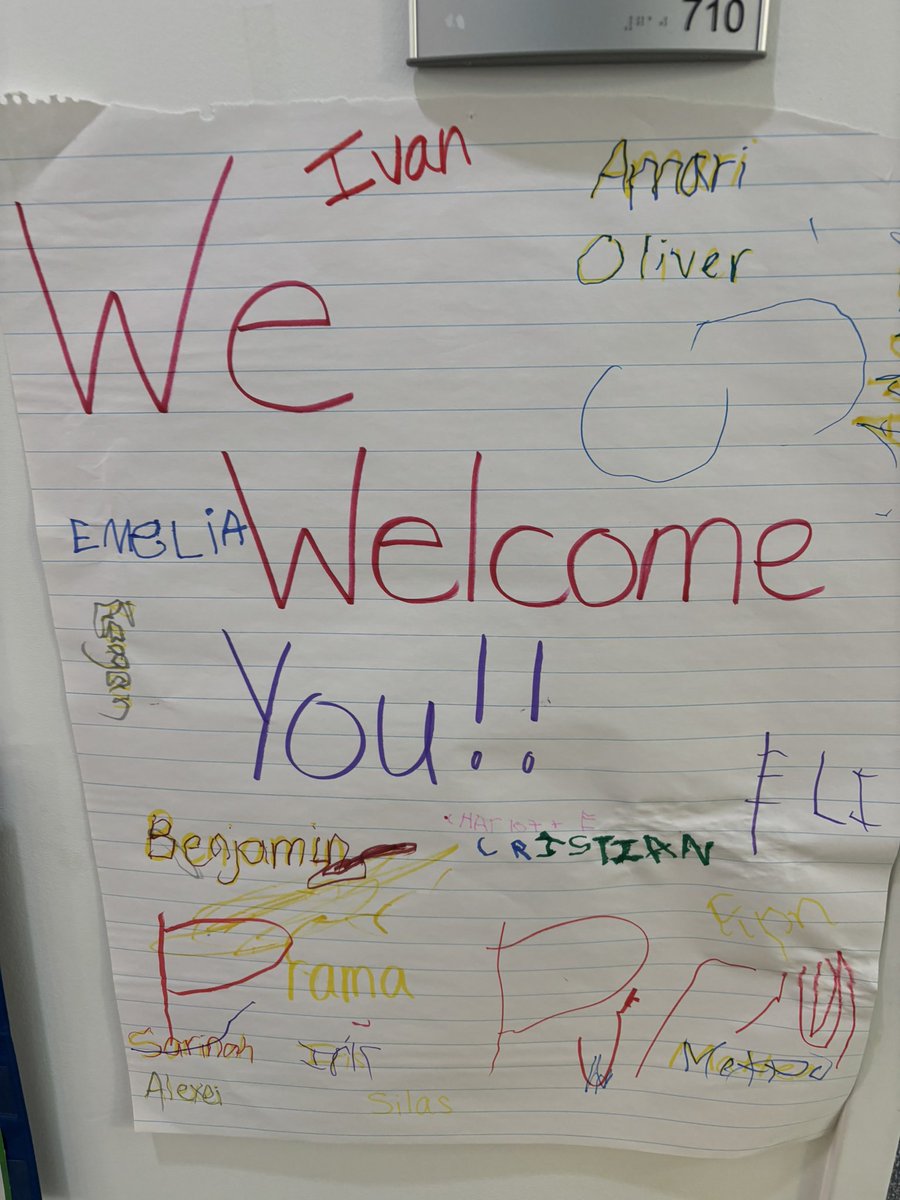 710
Ivan
Amari
We
Oliver
EMELiA
Welcome
Reagan
You!!
ELI
Benjamin
CRISTIAN
Prama
Sarinah
Alexei
Silas